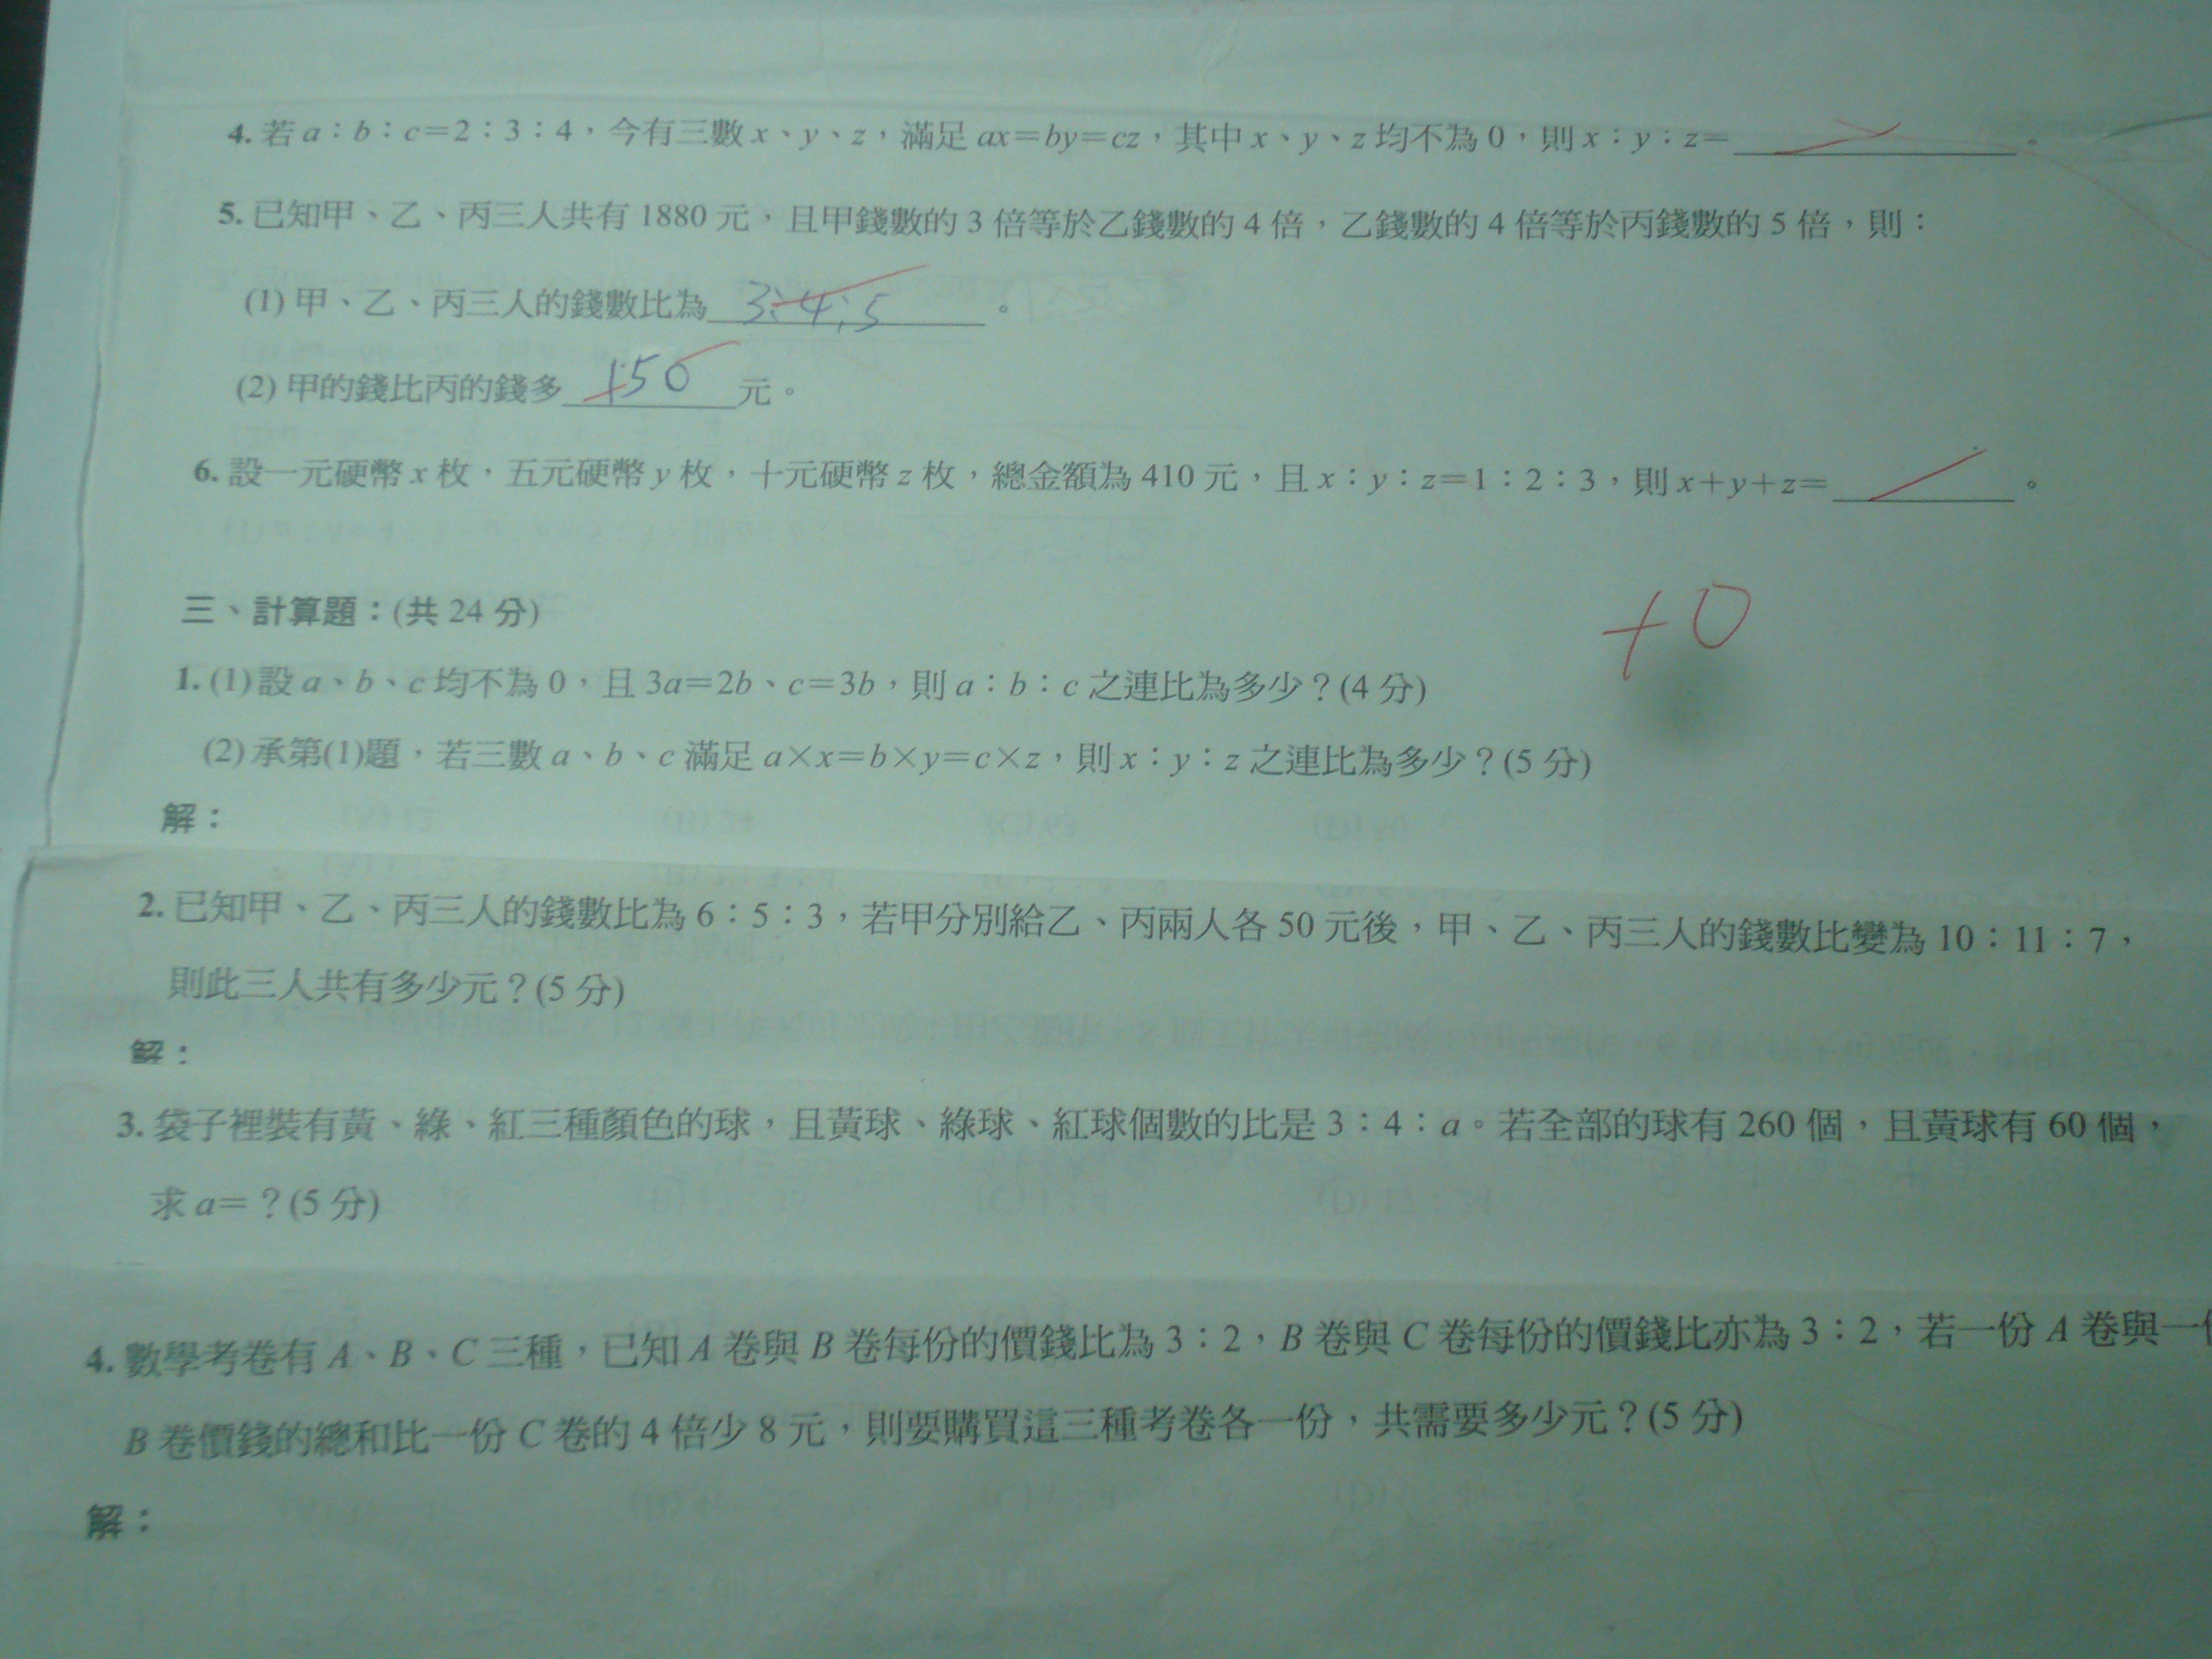 4. 若 a：b：c=2：3：4，今有三數 x、y、z，滿足 ax=by=cz，其中 x、y、z 均不為 0，則 x：y：z=＿＿＿。
5. 已知甲、乙、丙三人共有 1880 元，且甲錢數的 3 倍等於乙錢數的 4 倍，乙錢數的 4 倍等於丙錢數的 5 倍，則：
(1) 甲、乙、丙三人的錢數比為 3:4:5 。
(2) 甲的錢比丙的錢多 150 元。
6. 設一元硬幣 x 枚，五元硬幣 y 枚，十元硬幣 z 枚，總金額為 410 元，且 x：y：z=1：2：3，則 x+y+z=＿＿＿。
三、計算題：(共 24 分)
+0
1. (1) 設 a、b、c 均不為 0，且 3a=2b、c=3b，則 a：b：c 之連比為多少？(4 分)
(2) 承第(1)題，若三數 a、b、c 滿足 a×x=b×y=c×z，則 x：y：z 之連比為多少？(5 分)
解：
2. 已知甲、乙、丙三人的錢數比為 6：5：3，若甲分別給乙、丙兩人各 50 元後，甲、乙、丙三人的錢數比變為 10：11：7，
則此三人共有多少元？(5 分)
解：
3. 袋子裡裝有黃、綠、紅三種顏色的球，且黃球、綠球、紅球個數的比是 3：4：a。若全部的球有 260 個，且黃球有 60 個，
求 a=？(5 分)
4. 數學考卷有 A、B、C 三種，已知 A 卷與 B 卷每份的價錢比為 3：2，B 卷與 C 卷每份的價錢比亦為 3：2，若一份 A 卷與一
B 卷價錢的總和比一份 C 卷的 4 倍少 8 元，則要購買這三種考卷各一份，共需要多少元？(5 分)
解：